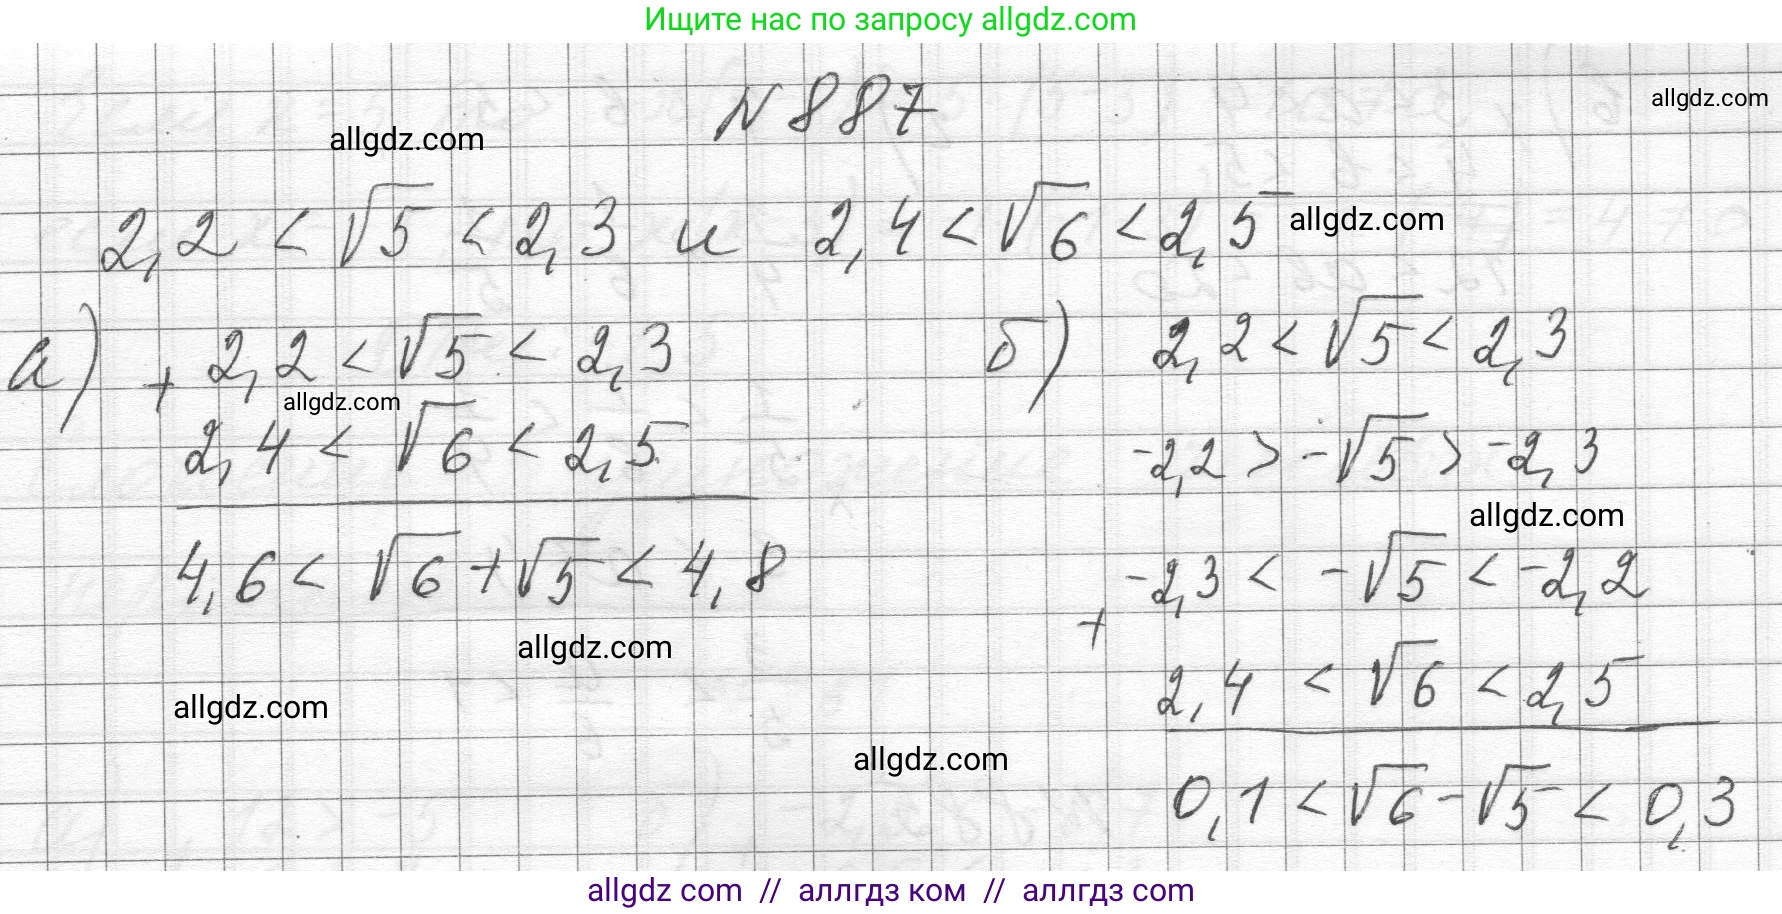 Ищите нас по запросу allgdz.com
N 887
allgdz.com
allgdz.com
2,2 < √5 < 2,3 и 2,4 < √6 < 2,5
allgdz.com
а) + 2,2 < √5 < 2,3
allgdz.com
2,4 < √6 < 2,5
4,6 < √6 + √5 < 4,8
allgdz.com
allgdz.com
б) 2,2 < √5 < 2,3
-2,2 > -√5 > -2,3
allgdz.com
-2,3 < -√5 < -2,2
+
2,4 < √6 < 2,5
allgdz.com
0,1 < √6 - √5 < 0,3
allgdz com // аллгдз ком // аллгдз com